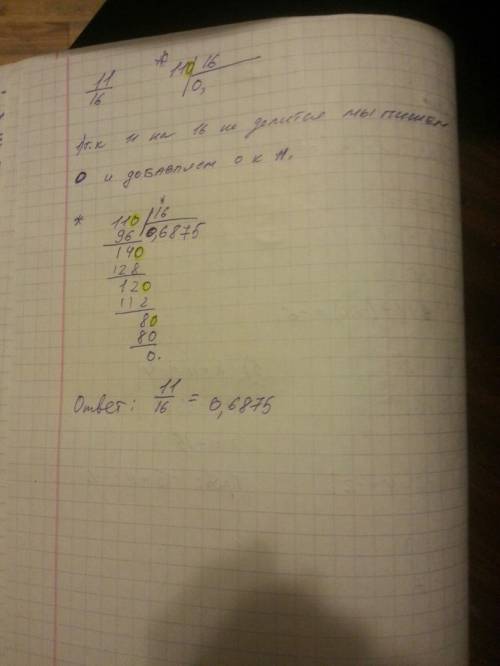 11
16
* 110 16
0,
1) т.к 11 на 16 не делится мы пишем
0 и добавляем 0 к 11.
* 110 16
96 0,6875
140
128
120
112
80
80
0.
Ответ: 11/16 = 0,6875